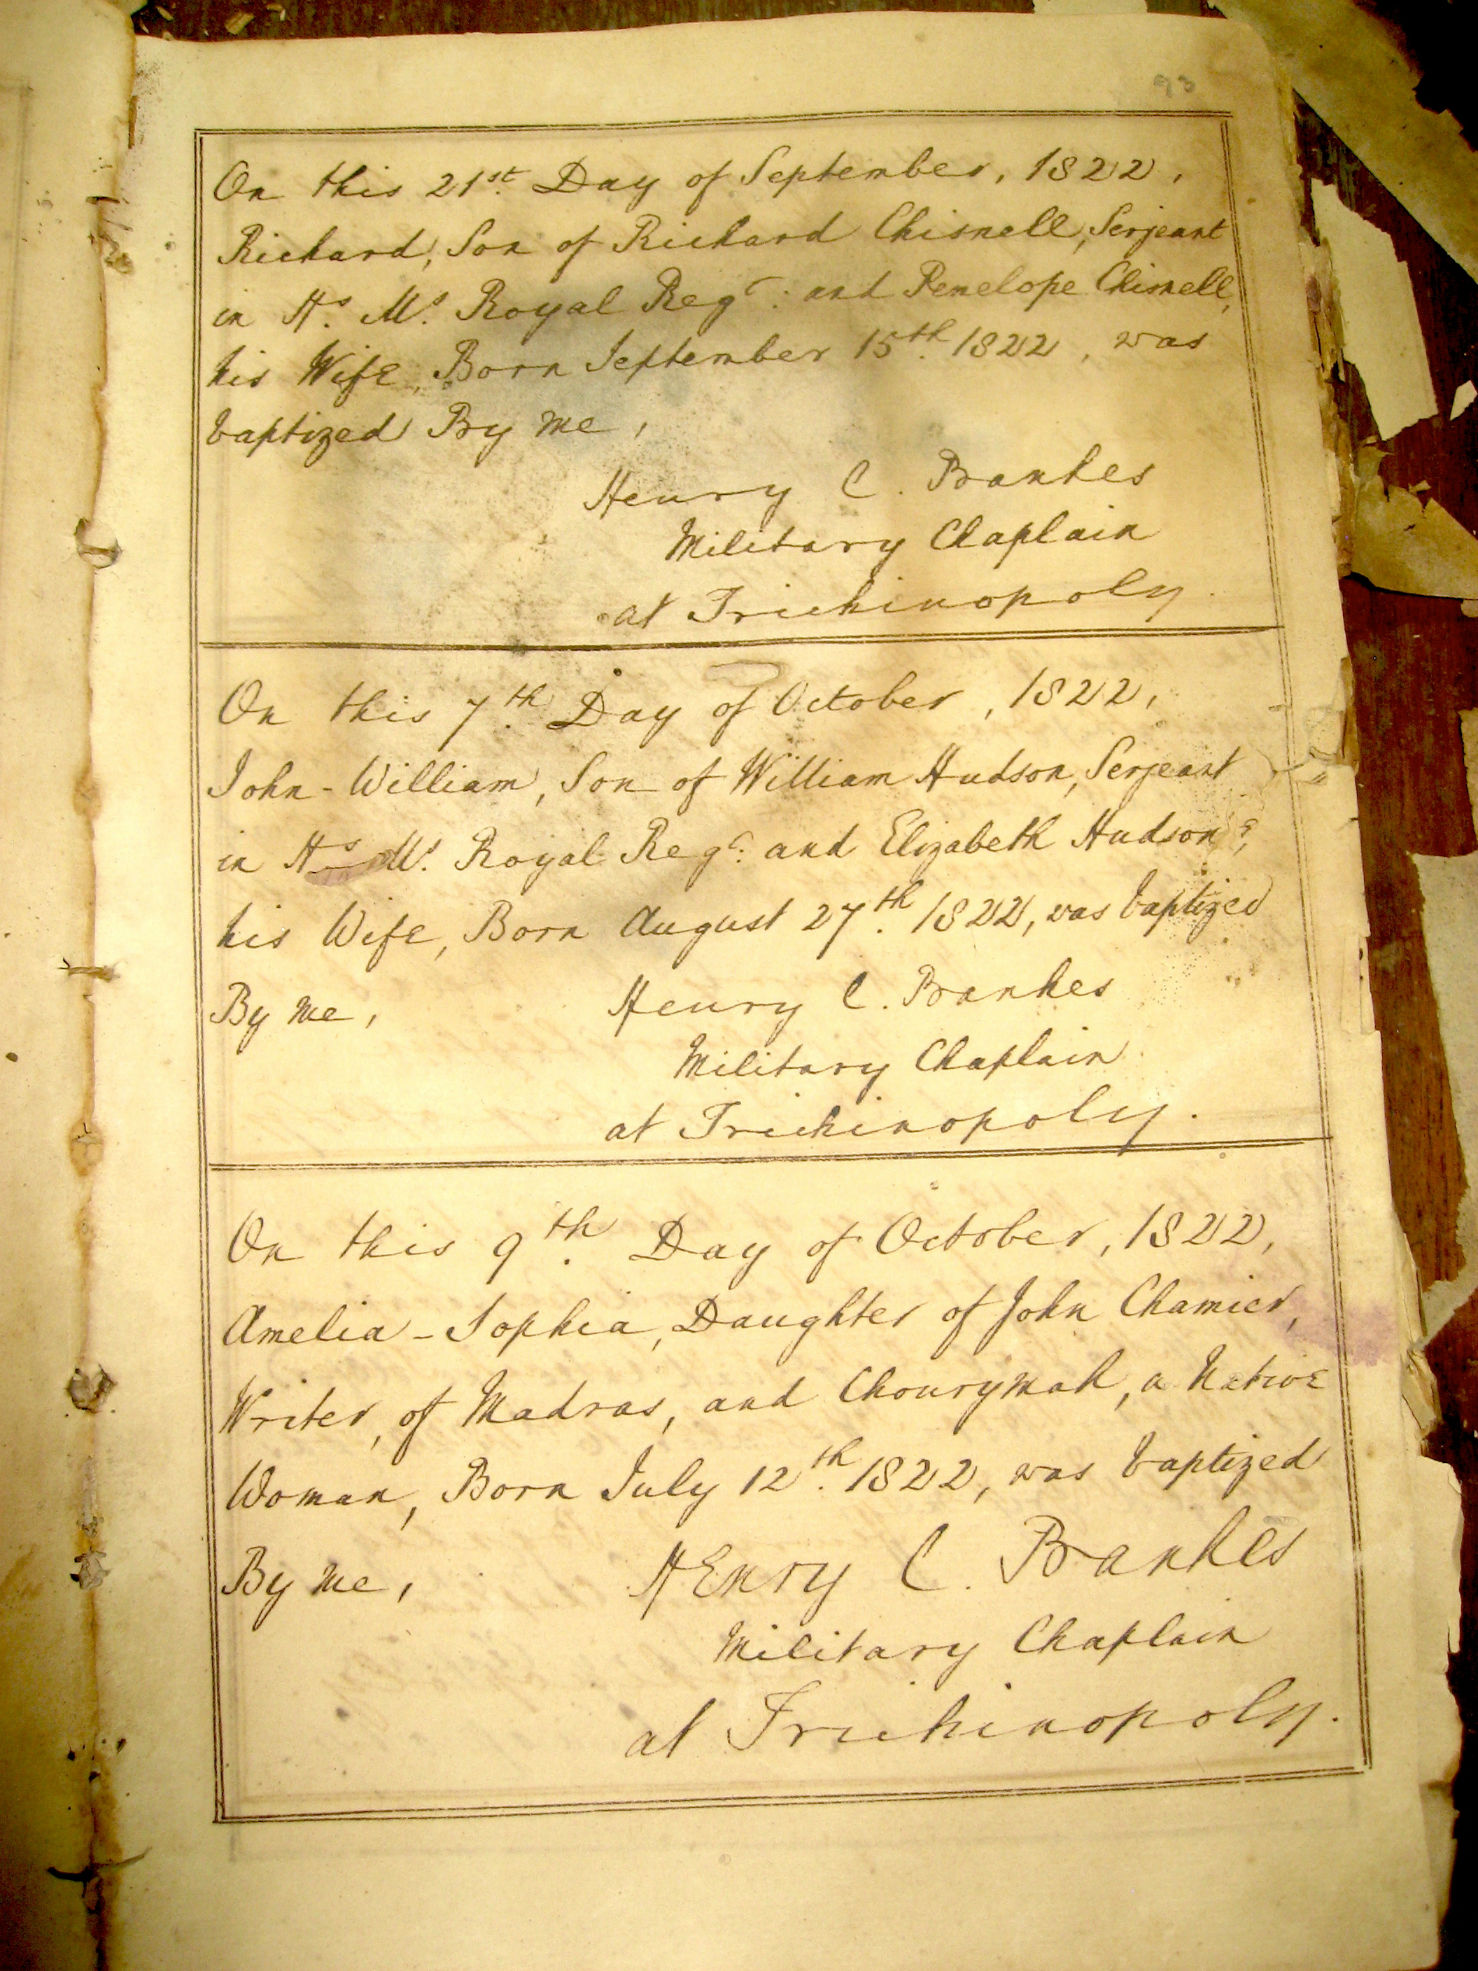 93
On this 21st. Day of September, 1822,
Richard, Son of Richard Chisnell, Serjeant
in Hs. Ms. Royal Regt: and Penelope Chisnell,
his Wife, Born September 15th. 1822, was
baptized By me,
Henry C. Bankes
Military Chaplain
at Trichinopoly.
On this 7th. Day of October, 1822,
John-William, Son of William Hudson, Serjeant
in Hs. Ms. Royal Regt: and Elizabeth Hudson,
his Wife, Born August 27th. 1822, was baptized
By me, Henry C. Bankes
Military Chaplain
at Trichinopoly.
On this 9th. Day of October, 1822,
Amelia-Sophia, Daughter of John Chamier,
Writer, of Madras, and Chourymah, a Native
Woman, Born July 12th. 1822, was baptized
By me, Henry C. Bankes
Military Chaplain
at Trichinopoly.